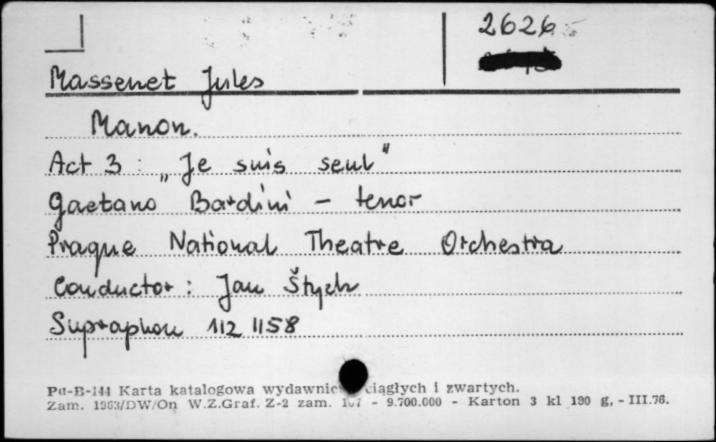 2626
Massenet Jules
Manon.
Act 3: „Je suis seul"
Gaetano Bardini - tenor
Prague National Theatre Orchestra
Conductor: Jan Štych
Supraphon 112 1158
Pu-B-144 Karta katalogowa wydawnic ciągłych i zwartych.
Zam. 1963/DW/On W.Z.Graf. Z-2 zam. - 9.700.000 - Karton 3 kl 190 g. - III.76.